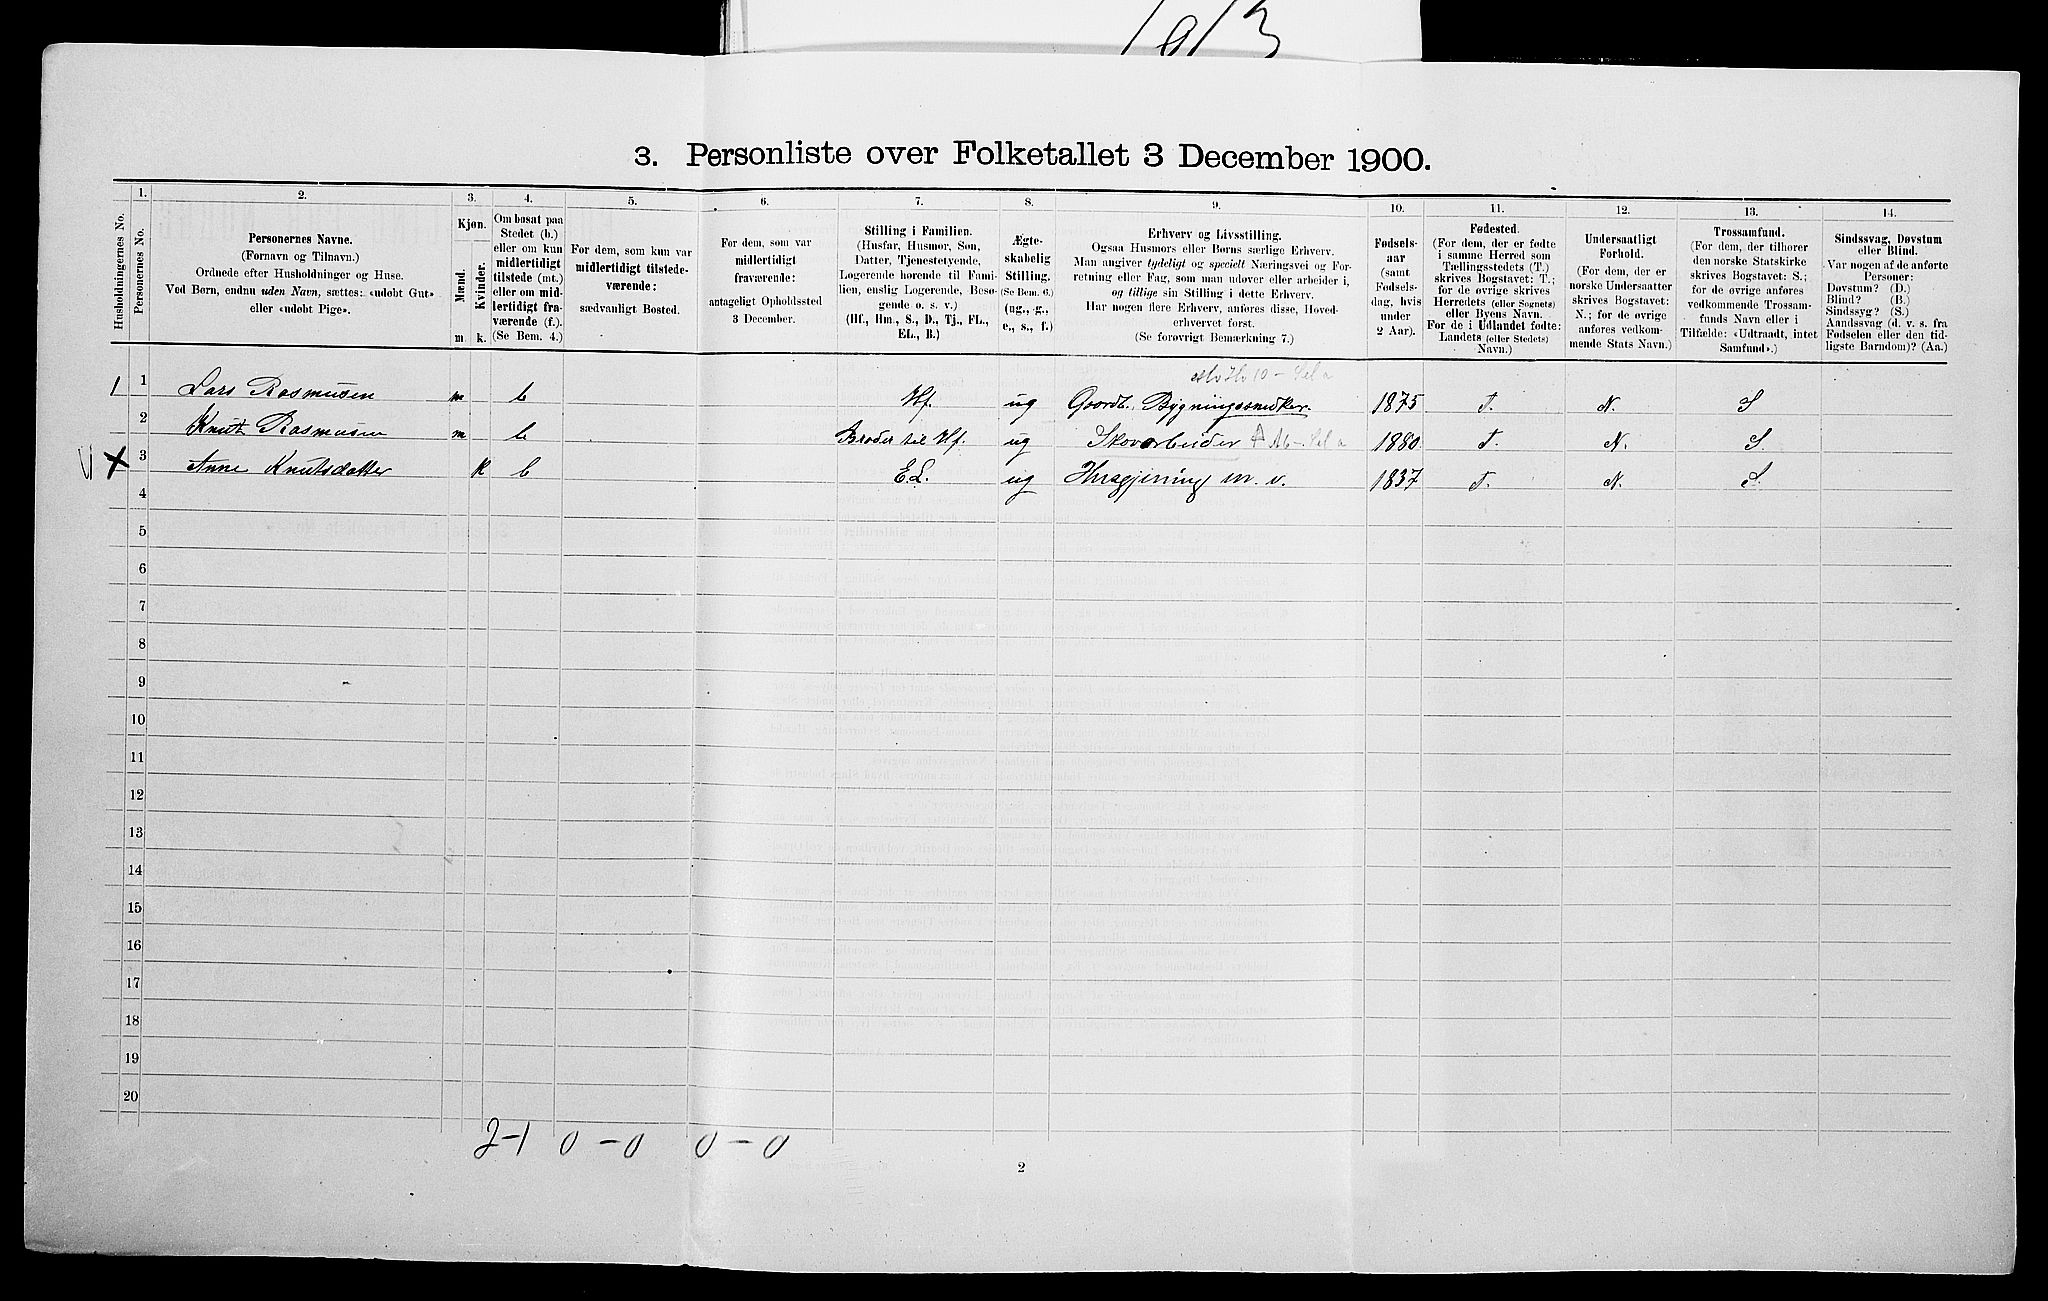 1913
3. Personliste over Folketallet 3 December 1900.
1. 2. 3. 4. 5. 6. 7. 8. 9. 10. 11. 12. 13. 14.
Husholdningernes No.
Personernes No.
Personernes Navne.
(Fornavn og Tilnavn.)
Ordnede efter Husholdninger og Huse.
Ved Børn, endnu uden Navn, sættes: «udøbt Gut»
eller «udøbt Pige».
Kjøn.
Mænd.
Kvinder.
m. k.
Om bosat paa
Stedet (b.)
eller om kun
midlertidigt
tilstede (mt.)
eller om mid-
lertidigt fra-
værende (f.).
(Se Bem. 4.)
For dem, som kun var
midlertidigt tilstede-
værende:
sædvanligt Bosted.
For dem, som var
midlertidigt
fraværende:
antageligt Opholdssted
3 December.
Stilling i Familien.
(Husfar, Husmor, Søn,
Datter, Tjenestetyende,
Logerende hørende til Fami-
lien, enslig Logerende, Besø-
gende o. s. v.)
(Hf., Hm., S., D., Tj., FL.,
EL., B.)
Ægte-
skabelig
Stilling.
(Se Bem. 6.)
(ug., g.,
e., s., f.)
Erhverv og Livsstilling.
Ogsaa Husmors eller Børns særlige Erhverv.
Man angiver tydeligt og specielt Næringsvei og For-
retning eller Fag, som man udøver eller arbeider i,
og tillige sin Stilling i dette Erhverv.
Har nogen flere Erhverv, anføres disse, Hoved-
erhvervet først.
(Se forøvrigt Bemærkning 7.)
Fødsels-
aar
(samt
Fødsels-
dag, hvis
under
2 Aar).
Fødested.
(For dem, der er fødte
i samme Herred som
Tællingsstedets (T.)
skrives Bogstavet: T.;
for de øvrige skrives
Herredets (eller Sognets)
eller Byens Navn.
For de i Udlandet fødte:
Landets (eller Stedets)
Navn.)
Undersaatligt
Forhold.
(For dem, der er
norske Undersaatter
skrives Bogstavet:
N.; for de øvrige
anføres vedkom-
mende Stats Navn.)
Trossamfund.
(For dem, der tilhører
den norske Statskirke
skrives Bogstavet: S.;
for de øvrige anføres
vedkommende Trossam-
funds Navn eller i
Tilfælde: «Udtraadt, intet
Samfund».)
Sindssvag, Døvstum
eller Blind.
Var nogen af de anførte
Personer:
Døvstum? (D.)
Blind? (B.)
Sindssyg? (S.)
Aandssvag (d. v. s. fra
Fødselen eller den tid-
ligste Barndom)? (Aa.)
1 1 Lars Rasmusen m b Hf. ug Gaardb. Bygningssnedker. 1875 T. N. S
2 Knut Rasmusen m b Broder til Hf. ug Skovarbeider 1880 T. N. S.
3 Anne Knutsdatter k b E.L. ug Husgjerning m. v. 1837 T. N. S.
4
5
6
7
8
9
10
11
12
13
14
15
16
17
18
19
20
2-1 0-0 0-0
2